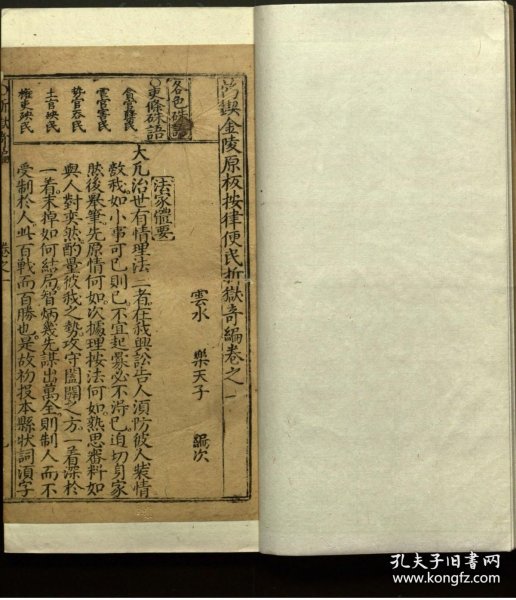 鍥金陵原板按律便民折獄奇編卷之一
雲水 樂天子 編次
各色硃語
吏條硃語
貪官
官害民
勢官吞民
土官殃民
權吏殃民
法家體要
大凢治世有情理法三者在我興訟告人湏防彼人裝情
敵我如小事可已則已不宜起釁必不淂已迫切身家
然後舉筆先原情何如次據理按法何如熟思審料如
與人對奕然酌量彼我之勢攻守闔闢之方一着深於
一着末掉如何結局智炳幾先謀出萬全則制人而不
受制於人此百戰而百勝也是故初投本縣狀詞湏字
卷之一
孔夫子旧书网
www.kongfz.com